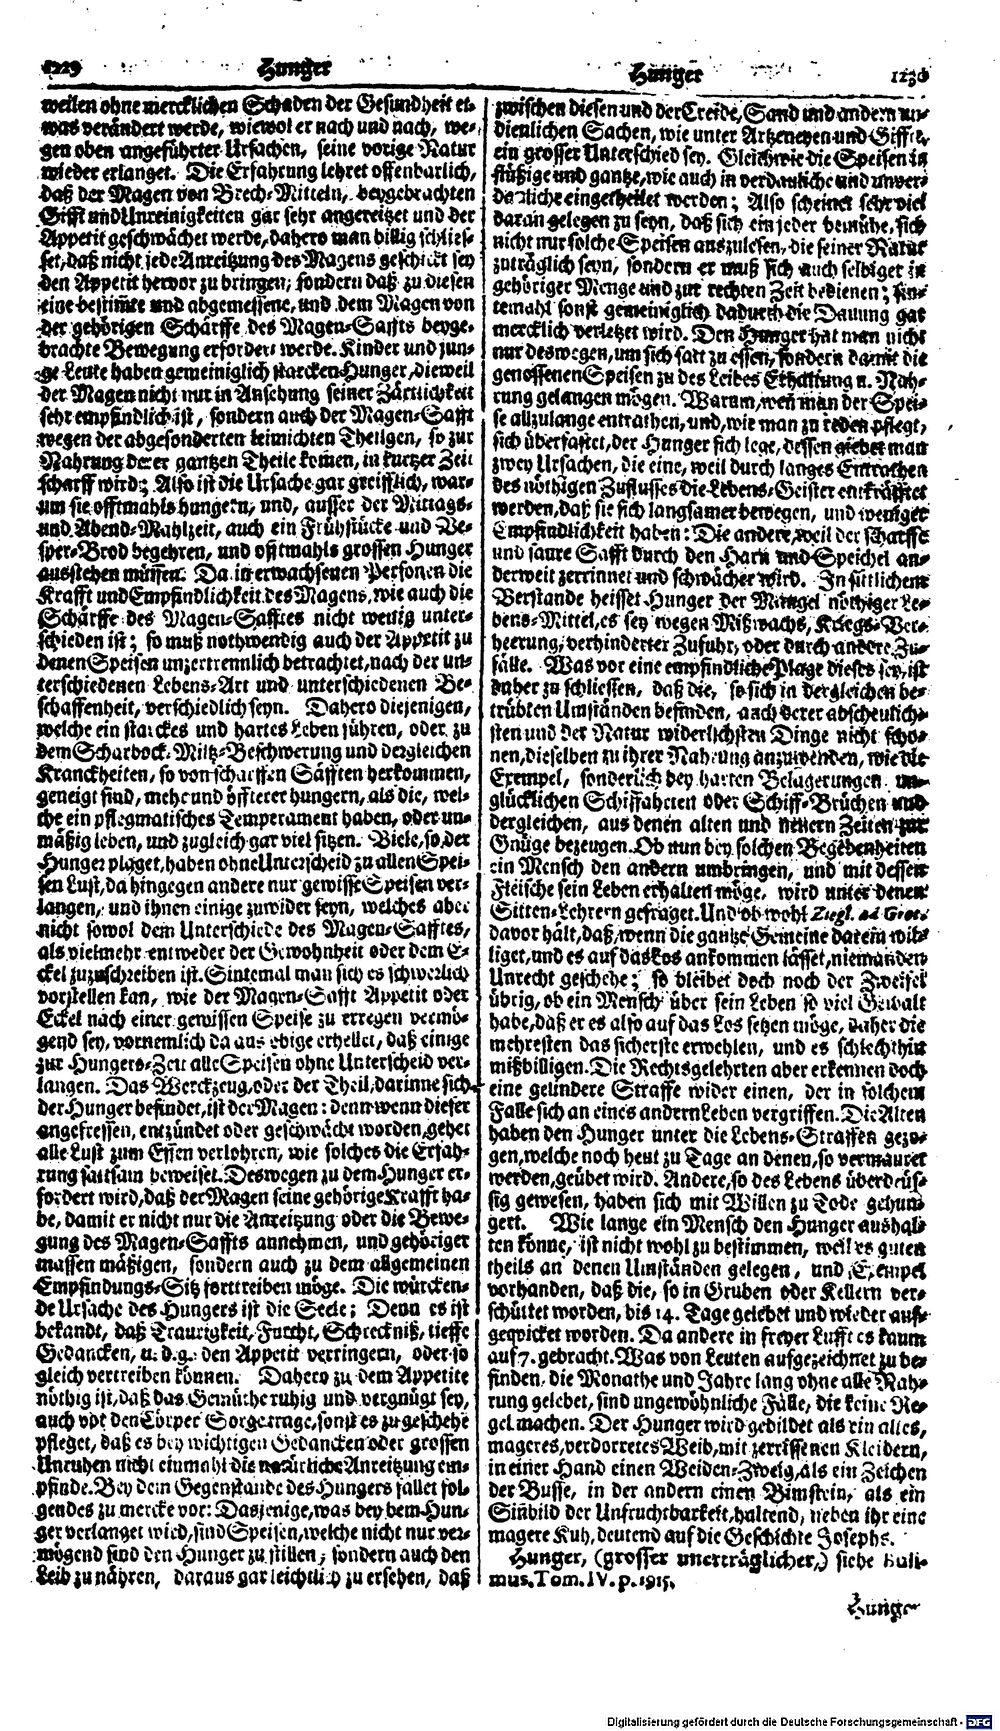 1229 Hunger
Hunger 1230
weilen ohne mercklichen Schaden der Gesundheit et-
was verändert werde, wiewol er nach und nach, we-
gen oben angeführter Ursachen, seine vorige Natur
wieder erlanget. Die Erfahrung lehret offenbarlich,
daß der Magen von Brech-Mitteln, beygebrachten
Gifft und Unreinigkeiten gar sehr angereitzet und der
Appetit geschwächet werde, dahero man billig schlies-
set, daß nicht jede Anreitzung des Magens geschickt sey
den Appetit hervor zu bringen; sondern daß zu diesen
eine bestim̃te und abgemessene, und dem Magen von
der gehörigen Schärffe des Magen-Saffts beyge-
brachte Bewegung erfordert werde. Kinder und jun-
ge Leute haben gemeiniglich starcken Hunger, dieweil
der Magen nicht nur in Ansehung seiner Zärtlichkeit
sehr empfindlich ist, sondern auch der Magen-Safft
wegen der abgesonderten leimichten Theilgen, so zur
Nahrung derer gantzen Theile kom̃en, in kurtzer Zeit
scharff wird; Also ist die Ursache gar greifflich, war-
um sie offtmahls hungern, und, ausser der Mittags-
und Abend-Mahlzeit, auch ein Frühstücke und Ve-
sper-Brod begehren, und offtmahls grossen Hunger
ausstehen müssen. Da in erwachsenen Personen die
Krafft und Empfindlichkeit des Magens, wie auch die
Schärffe des Magen-Safftes nicht wenig unter-
schieden ist; so muß nothwendig auch der Appetit zu
denen Speisen unzertrennlich betrachtet, nach der un-
terschiedenen Lebens-Art und unterschiedenen Be-
schaffenheit, verschiedlich seyn. Dahero diejenigen,
welche ein starckes und hartes Leben führen, oder zu
dem Scharbock, Miltz-Beschwerung und dergleichen
Kranckheiten, so von scharffen Säfften herkommen,
geneigt sind, mehr und öffterer hungern, als die, wel-
che ein pflegmatisches Temperament haben, oder un-
mäßig leben, und zugleich gar viel sitzen. Viele, so der
Hunger plaget, haben ohne Unterscheid zu allen Spei-
sen Lust, da hingegen andere nur gewisse Speisen ver-
langen, und ihnen einige zuwider seyn, welches aber
nicht sowol dem Unterschiede des Magen-Safftes,
als vielmehr entweder der Gewohnheit oder dem E-
ckel zuzuschreiben ist. Sintemal man sich es schwerlich
vorstellen kan, wie der Magen-Safft Appetit oder
Eckel nach einer gewissen Speise zu erregen vermö-
gend sey, vornemlich da aus obige erhellet, daß einige
zur Hungers-Zeit alle Speisen ohne Unterscheid ver-
langen. Das Werckzeug, oder der Theil, darinne sich
der Hunger befindet, ist der Magen: denn wenn dieser
angefressen, entzündet oder geschwächt worden, gehet
alle Lust zum Essen verlohren, wie solches die Erfah-
rung sattsam beweiset. Deswegen zu dem Hunger er-
fordert wird, daß der Magen seine gehörige Krafft ha-
be, damit er nicht nur die Anreitzung oder die Bewe-
gung des Magen-Saffts annehmen, und gehöriger
massen mäßigen, sondern auch zu dem allgemeinen
Empfindungs-Sitz forttreiben möge. Die würcken-
de Ursache des Hungers ist die Seele; Denn es ist
bekandt, daß Traurigkeit, Furcht, Schreckniß, tieffe
Gedancken, u. d. g. den Appetit verringern, oder so
gleich vertreiben können. Dahero zu dem Appetite
nöthig ist, daß das Gemüthe ruhig und vergnügt sey,
auch vor den Cörper Sorge trage, sonst es zu geschehe
pfleget, daß es bey wichtigen Gedancken oder grossen
Unruhen nicht einmahl die natürliche Anreitzung em-
pfinde. Bey dem Gegenstande des Hungers fället fol-
gendes zu mercke vor: Dasjenige, was bey dem Hun-
ger verlanget wird, sind Speisen, welche nicht nur ver-
mögend sind den Hunger zu stillen; sondern auch den
Leib zu nähren, daraus gar leichtlich zu ersehen, daß
zwischen diesen und der Creide, Sand und andern un-
dienlichen Sachen, wie unter Artzeneyen und Giffte,
ein grosser Unterschied sey. Gleichwie die Speisen in
flüßige und gantze, wie auch in verdauliche und unver-
dauliche eingetheilet werden; Also scheinet sehr viel
daran gelegen zu seyn, daß sich ein jeder bemühe, sich
nicht nur solche Speisen auszulesen, die seiner Natur
zuträglich seyn, sondern er muß sich auch selbiger in
gehöriger Menge und zur rechten Zeit bedienen; sin-
temahl sonst gemeiniglich dadurch die Dauung gar
mercklich verletzet wird. Den Hunger hat man nicht
nur deswegen, um sich satt zu essen, sondern damit die
genossenen Speisen zu des Leibes Erhaltung u. Nah-
rung gelangen mögen. Warum, weñ man der Spei-
se allzulange entrathen, und, wie man zu reden pflegt,
sich überfastet, der Hunger sich lege, dessen giebet man
zwey Ursachen, die eine, weil durch langes Entrathen
des nöthigen Zuflusses die Lebens-Geister entkräfftet
werden, daß sie sich langsamer bewegen, und weniger
Empfindlichkeit haben: Die andere, weil der scharffe
und saure Safft durch den Harn und Speichel an-
derweit zerrinnet und schwächer wird. In sittlichem
Verstande heisset Hunger der Mangel nöthiger Le-
bens-Mittel, es sey wegen Mißwachs, Kriegs-Ver-
heerung, verhinderter Zufuhr, oder durch andere Zu-
fälle. Was vor eine empfindliche Plage dieses sey, ist
daher zu schliessen, daß die, so sich in dergleichen be-
trübten Umständen befinden, auch derer abscheulich-
sten und der Natur widerlichsten Dinge nicht scho-
nen, dieselben zu ihrer Nahrung anzuwenden, wie die
Exempel, sonderlich bey harten Belagerungen un-
glücklichen Schiffahrten oder Schiff-Brüchen und
dergleichen, aus denen alten und neuern Zeiten zur
Gnüge bezeugen. Ob nun bey solchen Begebenheiten
ein Mensch den andern umbringen, und mit dessen
Fleische sein Leben erhalten möge, wird unter denen
Sitten-Lehrern gefraget. Und ob wohl Ziegl. ad Grot.
davor hält, daß, wenn die gantze Gemeine darein wil-
liget, und es auf das Los ankommen lässet, niemanden
Unrecht geschehe; so bleibet doch noch der Zweifel
übrig, ob ein Mensch über sein Leben so viel Gewalt
habe, daß er es also auf das Los setzen möge, daher die
mehresten das sicherste erwehlen, und es schlechthin
mißbilligen. Die Rechtsgelehrten aber erkennen doch
eine gelindere Straffe wider einen, der in solchem
Falle sich an eines andern Leben vergriffen. Die Alten
haben den Hunger unter die Lebens-Straffen gezo-
gen, welche noch heut zu Tage an denen, so vermauret
werden, geübet wird. Andere, so des Lebens überdrüs-
sig gewesen, haben sich mit Willen zu Tode gehun-
gert. Wie lange ein Mensch den Hunger aushal-
ten könne, ist nicht wohl zu bestimmen, weil es guten
theils an denen Umständen gelegen, und Exempel
vorhanden, daß die, so in Gruben oder Kellern ver-
schüttet worden, bis 14. Tage gelebet und wieder auf-
gequicket worden. Da andere in freyer Lufft es kaum
auf 7. gebracht. Was von Leuten aufgezeichnet zu be-
finden, die Monathe und Jahre lang ohne alle Nah-
rung gelebet, sind ungewöhnliche Fälle, die keine Re-
gel machen. Der Hunger wird gebildet als ein altes,
mageres, verdorretes Weib, mit zerrissenen Kleidern,
in einer Hand einen Weiden-Zweig, als ein Zeichen
der Busse, in der andern einen Bimstein, als ein
Siñbild der Unfruchtbarkeit, haltend, neben ihr eine
magere Kuh, deutend auf die Geschichte Josephs.
Hunger, (grosser unerträglicher,) siehe Buli-
mus. Tom. IV. p. 1915.
Hunger
Digitalisierung gefördert durch die Deutsche Forschungsgemeinschaft - DFG